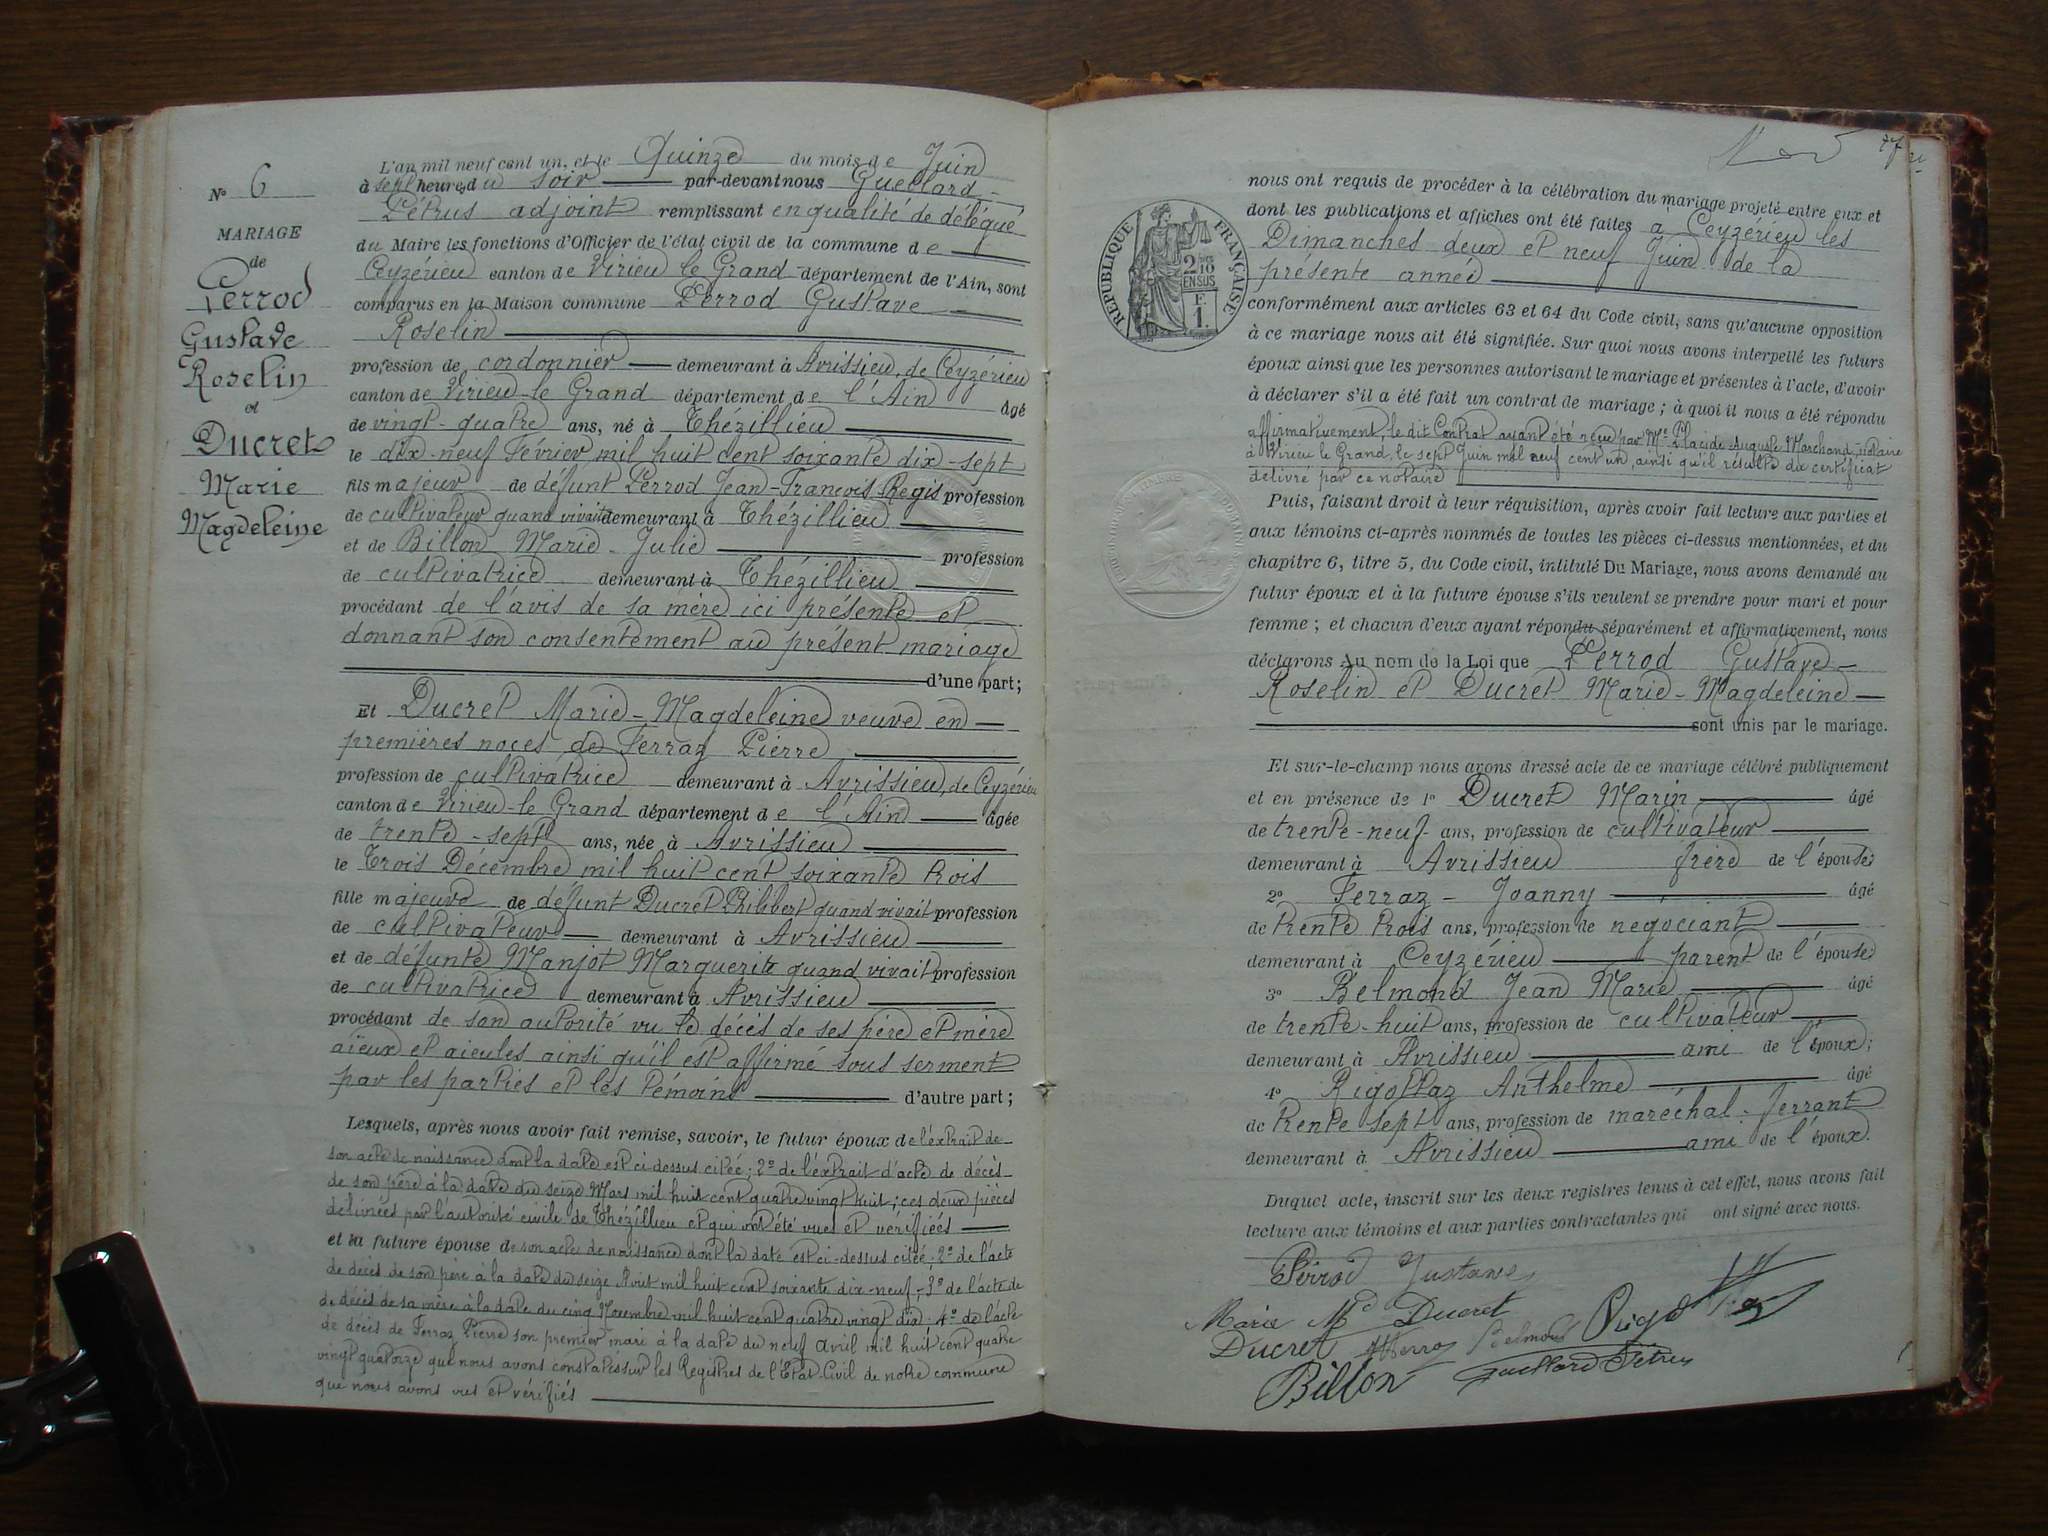 N° 6
MARIAGE
de
Perrod
Gustave
Roselin
et
Ducret
Marie
Magdeleine
L'an mil neuf cent un, et le Quinze du mois de Juin
à sept heures du soir par-devant nous Guettard
Pétrus adjoint remplissant en qualité de délégué
du Maire les fonctions d'Officier de l'état civil de la commune de
Ceyzérieu canton de Virieu le Grand département de l'Ain, sont
comparus en la Maison commune Perrod Gustave
Roselin
profession de cordonnier demeurant à Avrissieu, de Ceyzérieu
canton de Virieu-le Grand département de l'Ain âgé
de vingt-quatre ans, né à Thézillieu
le dix-neuf Février mil huit cent soixante dix-sept
fils majeur de défunt Perrod Jean-François Régis profession
de cultivateur quand vivait demeurant à Thézillieu
et de Billon Marie-Julie profession
de cultivatrice demeurant à Thézillieu
procédant de l'avis de sa mère ici présente et
donnant son consentement au présent mariage
d'une part;
Et Ducret Marie-Magdeleine veuve en
premières noces de Ferraz Pierre
profession de cultivatrice demeurant à Avrissieu, de Ceyzérieu
canton de Virieu-le Grand département de l'Ain âgée
de trente-sept ans, née à Avrissieu
le Trois Décembre mil huit cent soixante trois
fille majeure de défunt Ducret Philibert quand vivait profession
de cultivateur demeurant à Avrissieu
et de défunte Manjot Marguerite quand vivait profession
de cultivatrice demeurant à Avrissieu
procédant de son autorité vu le décès de ses père et mère
aïeux et aieules ainsi qu'il est affirmé sous serment
par les parties et les témoins d'autre part;
Lesquels, après nous avoir fait remise, savoir, le futur époux de l'extrait de
son acte de naissance dont la date est ci-dessus citée; 2° de l'extrait d'acte de décès
de son père à la date du seize Mars mil huit cent quatre vingt huit; ces deux pièces
délivrées par l'autorité civile de Thézillieu et qui ont été vues et vérifiées
et la future épouse de son acte de naissance dont la date est ci-dessus citée; 2° de l'acte
de décès de son père à la date du seize Avril mil huit cent soixante dix-neuf; 3° de l'acte de
de décès de sa mère à la date du cinq Novembre mil huit cent quatre vingt dix; 4° de l'acte
de décès de Ferraz Pierre son premier mari à la date du neuf avril mil huit cent quatre
vingt quatorze que nous avons constatés sur les Registres de l'Etat-Civil de notre commune
que nous avons vus et vérifiés
RÉPUBLIQUE FRANÇAISE
2/10 EN SUS
F. 1.
nous ont requis de procéder à la célébration du mariage projeté entre eux et
dont les publications et affiches ont été faites à Ceyzérieu les
Dimanches deux et neuf Juin de la
présente année
conformément aux articles 63 et 64 du Code civil, sans qu'aucune opposition
à ce mariage nous ait été signifiée. Sur quoi nous avons interpellé les futurs
époux ainsi que les personnes autorisant le mariage et présentes à l'acte, d'avoir
à déclarer s'il a été fait un contrat de mariage; à quoi il nous a été répondu
affirmativement, le dit Contrat ayant été reçu par Me Placide Auguste Marchand, notaire
à Virieu le Grand, le sept Juin mil neuf cent un, ainsi qu'il résulte du certificat
délivré par ce notaire
Puis, faisant droit à leur réquisition, après avoir fait lecture aux parties et
aux témoins ci-après nommés de toutes les pièces ci-dessus mentionnées, et du
chapitre 6, titre 5, du Code civil, intitulé Du Mariage, nous avons demandé au
futur époux et à la future épouse s'ils veulent se prendre pour mari et pour
femme; et chacun d'eux ayant répondu séparément et affirmativement, nous
déclarons Au nom de la Loi que Perrod Gustave
Roselin et Ducret Marie-Magdeleine
sont unis par le mariage.
Et sur-le-champ nous avons dressé acte de ce mariage célébré publiquement
et en présence de 1° Ducret Marin âgé
de trente-neuf ans, profession de cultivateur
demeurant à Avrissieu frère de l'épouse
2° Ferraz-Joanny âgé
de trente trois ans, profession de négociant
demeurant à Ceyzérieu parent de l'épouse
3° Belmond Jean Marie âgé
de trente-huit ans, profession de cultivateur
demeurant à Avrissieu ami de l'époux;
4° Rigottaz Anthelme âgé
de trente sept ans, profession de maréchal-ferrant
demeurant à Avrissieu ami de l'époux.
Duquel acte, inscrit sur les deux registres tenus à cet effet, nous avons fait
lecture aux témoins et aux parties contractantes qui ont signé avec nous.
Perrod Gustave
Marie Md Ducret
Ducret Belmond
Billon